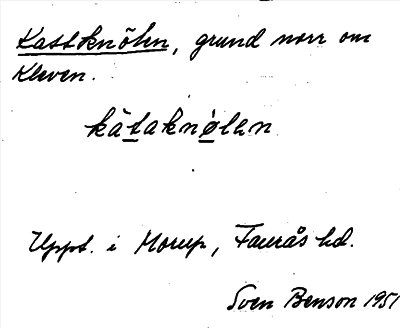 Kastknölen, grund norr om
Kleven.
kàtaknølen
Uppt. i Morup, Faurås hd.
Sven Benson 1951